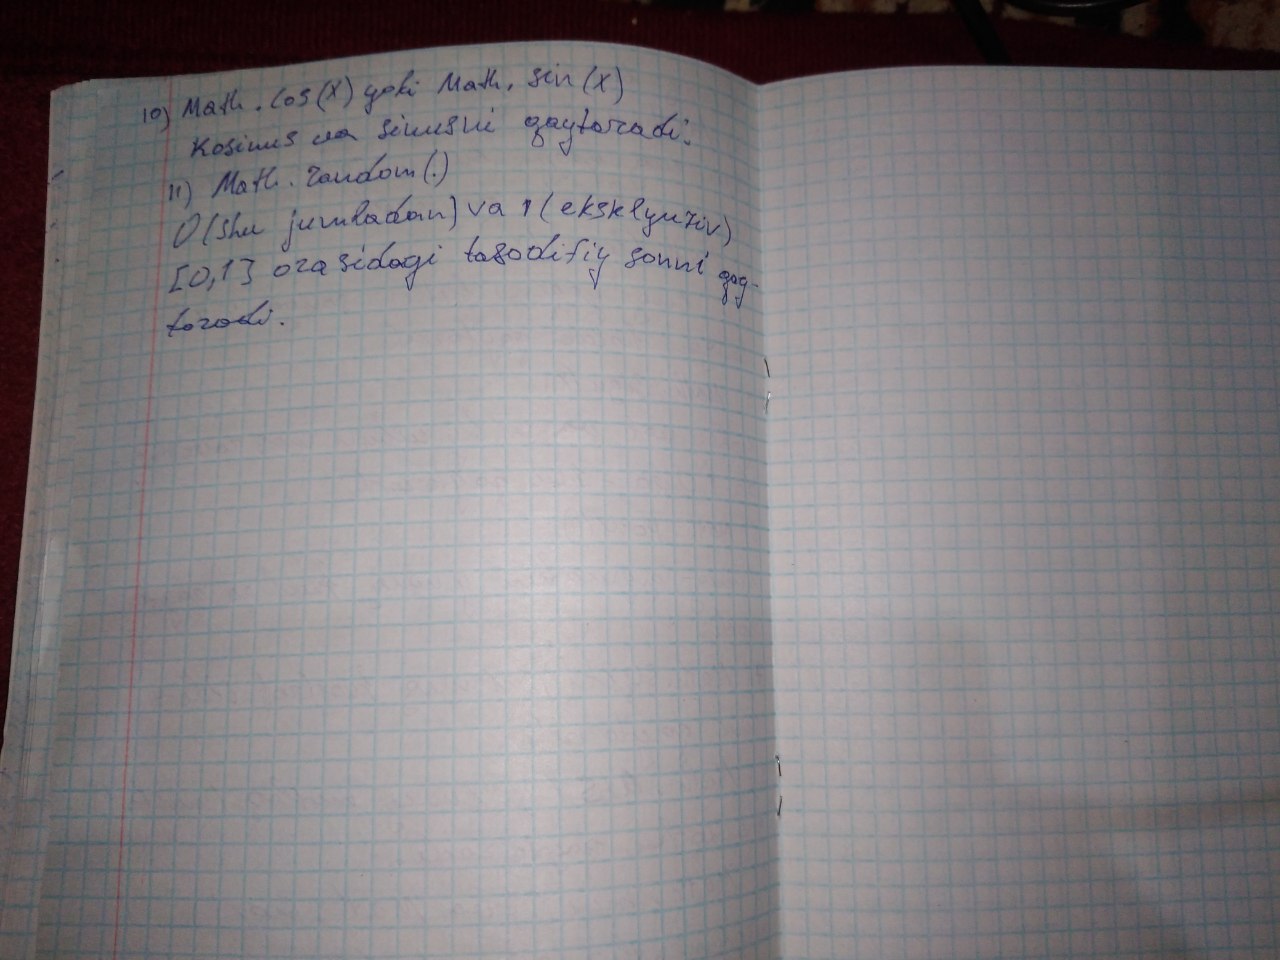 10) Math. cos(x) yoki Math. sin(x)
Kosinus va sinusni qaytaradi.
11) Math. random(.)
0(shu jumladan) va 1(eksklyuziv)
[0,1] orasidagi tasodifiy sonni qay-
taradi.